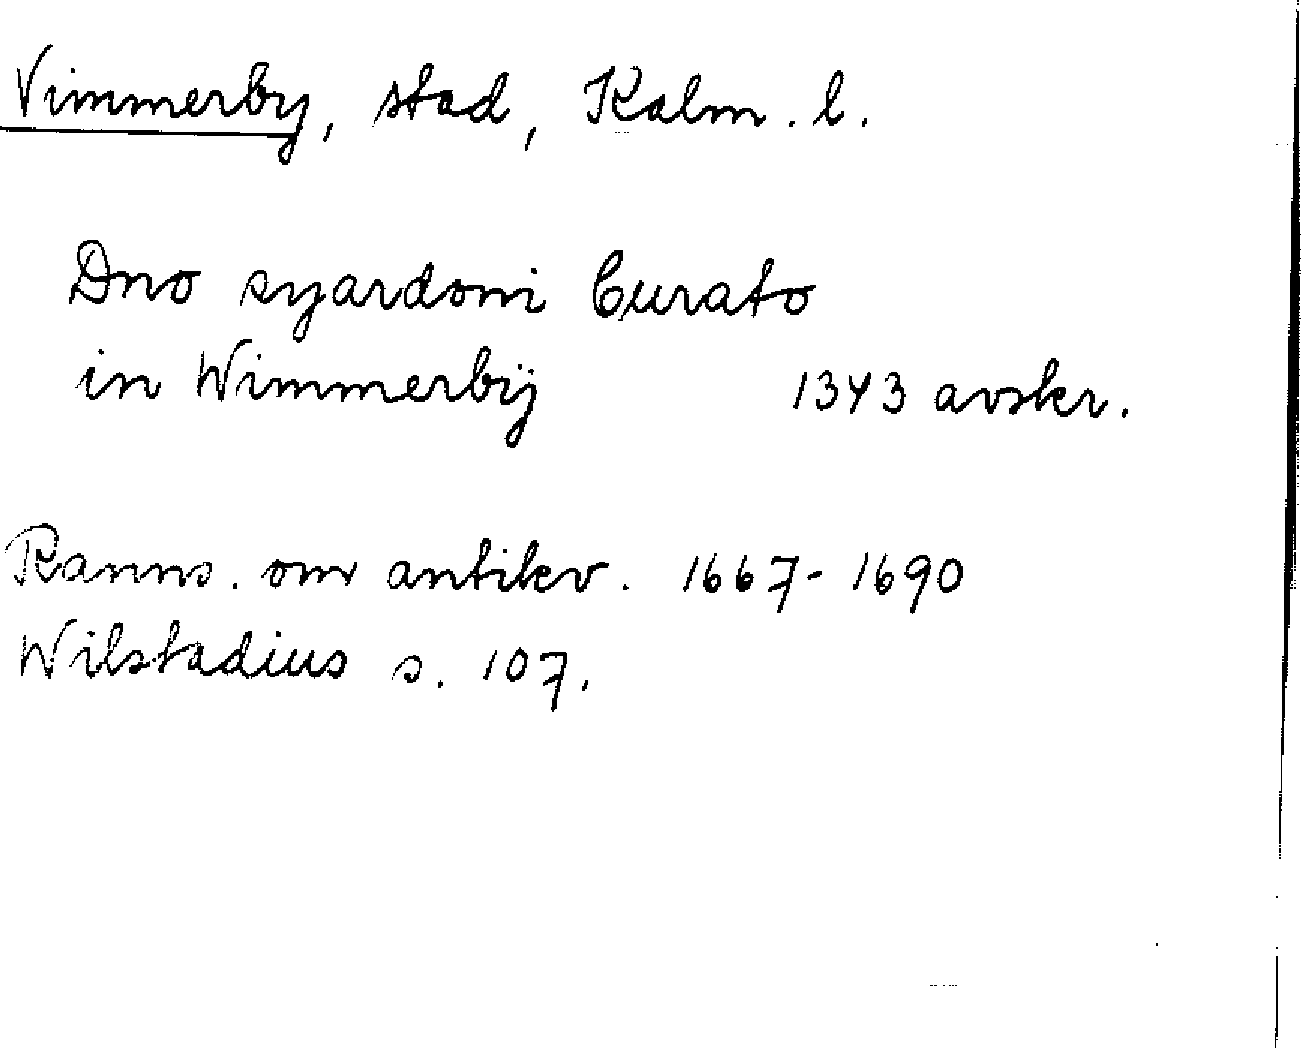 Vimmerby, stad, Kalm. l.
Dno syardoni Curato
in Wimmerbÿ 1343 avskr.
Ranns. om antikv. 1667-1690
Wilstadius s. 107.